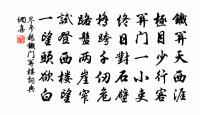 鐵關天西涯
極目少行客
關門一小吏
終日對石壁
橋跨千仞危
路盤兩崖窄
試登西樓望
一望頭欲白
岑參題鐵門關樓詞典
網集